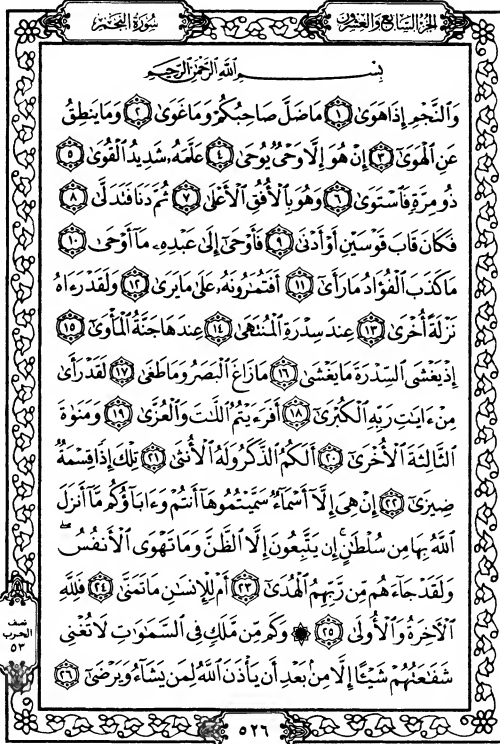 سُورَةُ النَّجْمِ
الجُزْءُ السَّابِعُ وَالعِشْرُونَ
بِسْمِ ٱللَّهِ ٱلرَّحْمَٰنِ ٱلرَّحِيمِ
وَٱلنَّجْمِ إِذَا هَوَىٰ ١ مَا ضَلَّ صَاحِبُكُمْ وَمَا غَوَىٰ ٢ وَمَا يَنطِقُ
عَنِ ٱلْهَوَىٰٓ ٣ إِنْ هُوَ إِلَّا وَحْىٌ يُوحَىٰ ٤ عَلَّمَهُۥ شَدِيدُ ٱلْقُوَىٰ ٥
ذُو مِرَّةٍ فَٱسْتَوَىٰ ٦ وَهُوَ بِٱلْأُفُقِ ٱلْأَعْلَىٰ ٧ ثُمَّ دَنَا فَتَدَلَّىٰ ٨
فَكَانَ قَابَ قَوْسَيْنِ أَوْ أَدْنَىٰ ٩ فَأَوْحَىٰٓ إِلَىٰ عَبْدِهِۦ مَآ أَوْحَىٰ ١٠
مَا كَذَبَ ٱلْفُؤَادُ مَا رَأَىٰٓ ١١ أَفَتُمَٰرُونَهُۥ عَلَىٰ مَا يَرَىٰ ١٢ وَلَقَدْ رَءَاهُ
نَزْلَةً أُخْرَىٰ ١٣ عِندَ سِدْرَةِ ٱلْمُنتَهَىٰ ١٤ عِندَهَا جَنَّةُ ٱلْمَأْوَىٰٓ ١٥
إِذْ يَغْشَى ٱلسِّدْرَةَ مَا يَغْشَىٰ ١٦ مَا زَاغَ ٱلْبَصَرُ وَمَا طَغَىٰ ١٧ لَقَدْ رَأَىٰ
مِنْ ءَايَٰتِ رَبِّهِ ٱلْكُبْرَىٰٓ ١٨ أَفَرَءَيْتُمُ ٱللَّٰتَ وَٱلْعُزَّىٰ ١٩ وَمَنَوٰةَ
ٱلثَّالِثَةَ ٱلْأُخْرَىٰٓ ٢٠ أَلَكُمُ ٱلذَّكَرُ وَلَهُ ٱلْأُنثَىٰ ٢١ تِلْكَ إِذًا قِسْمَةٌ
ضِيزَىٰٓ ٢٢ إِنْ هِىَ إِلَّآ أَسْمَآءٌ سَمَّيْتُمُوهَآ أَنتُمْ وَءَابَآؤُكُم مَّآ أَنزَلَ
ٱللَّهُ بِهَا مِن سُلْطَٰنٍ ۚ إِن يَتَّبِعُونَ إِلَّا ٱلظَّنَّ وَمَا تَهْوَى ٱلْأَنفُسُ ۖ
وَلَقَدْ جَآءَهُم مِّن رَّبِّهِمُ ٱلْهُدَىٰٓ ٢٣ أَمْ لِلْإِنسَٰنِ مَا تَمَنَّىٰ ٢٤ فَلِلَّهِ
ٱلْأَخِرَةُ وَٱلْأُولَىٰ ٢٥ ۞ وَكَم مِّن مَّلَكٍ فِى ٱلسَّمَٰوَٰتِ لَا تُغْنِى
شَفَٰعَتُهُمْ شَيْـًٔا إِلَّا مِنۢ بَعْدِ أَن يَأْذَنَ ٱللَّهُ لِمَن يَشَآءُ وَيَرْضَىٰٓ ٢٦
نصف
الحزب
٥٣
٥٢٦